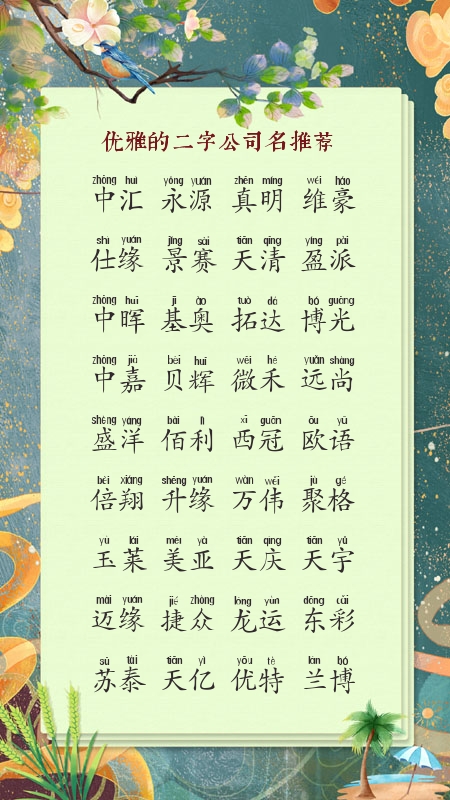 优雅的二字公司名推荐
zhōng huì yǒng yuán zhēn míng wéi háo
中汇 永源 真明 维豪
shì yuán jǐng sài tiān qīng yíng pài
仕缘 景赛 天清 盈派
zhōng huī jī ào tuò dá bó guāng
中晖 基奥 拓达 博光
zhōng jiā bèi huī wēi hé yuǎn shàng
中嘉 贝辉 微禾 远尚
shèng yáng bǎi lì xī guān ōu yǔ
盛洋 佰利 西冠 欧语
bèi xiáng shēng yuán wàn wěi jù gé
倍翔 升缘 万伟 聚格
yù lái měi yà tiān qìng tiān yǔ
玉莱 美亚 天庆 天宇
mài yuán jié zhòng lóng yùn dōng cǎi
迈缘 捷众 龙运 东彩
sū tài tiān yì yōu tè lán bó
苏泰 天亿 优特 兰博